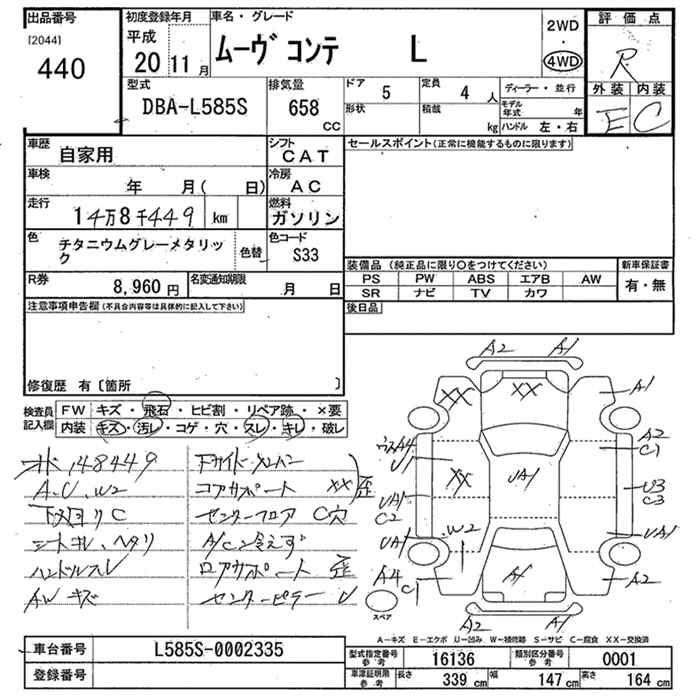 出品番号
[2044]
440
初度登録年月
平成
20 11 月
車名・グレード
ムーヴ コンテ L
2WD
・
4WD
評価点
R
外装 内装
E C
型式
DBA-L585S
排気量
658
CC
ドア 5
定員 4 人
ディーラー・並行
形状
積載
kg
モデル年式 年
ハンドル 左・右
車歴
自家用
シフト
CAT
セールスポイント(正常に機能するものに限ります)
車検
年 月( 日)
冷房
AC
走行
14万8千449 km
燃料
ガソリン
色
チタニウムグレーメタリック
色替
色コード
S33
R券
8,960 円
名変通知期限
月 日
装備品(純正品に限り〇をつけてください)
PS PW ABS エアB AW
SR ナビ TV カワ
新車保証書
有・無
注意事項申告欄(不具合内容等は具体的に記入して下さい)
後日品
修復歴 有〔箇所 〕
検査員記入欄
FW キズ・飛石・ヒビ割・リペア跡・×要
内装 キズ・汚レ・コゲ・穴・スレ・キレ・破レ
148449
A.U.W2
下回りC
シートキレ、ヘタリ
ハンドルスレ
AW キズ
下サイドメンバー
コアサポート XX 歪
センターフロア C穴
A/C冷えず
ロアサポート 歪
センターピラー U
A2 A1
XX XX A1
ウスA4
U1
A2
C1
XX UA1
UA1
C2
U3
C3
UA1
W2
UA1
A4 C1
A1
A2
A2 A1
スペア
A-キズ E-エクボ U-凹み W-補修跡 S-サビ C-腐食 XX-交換済
車台番号
L585S-0002335
登録番号
型式指定番号
参考
16136
類別区分番号
参考
0001
車庫証明用
参考
長さ 339 cm 幅 147 cm 高さ 164 cm